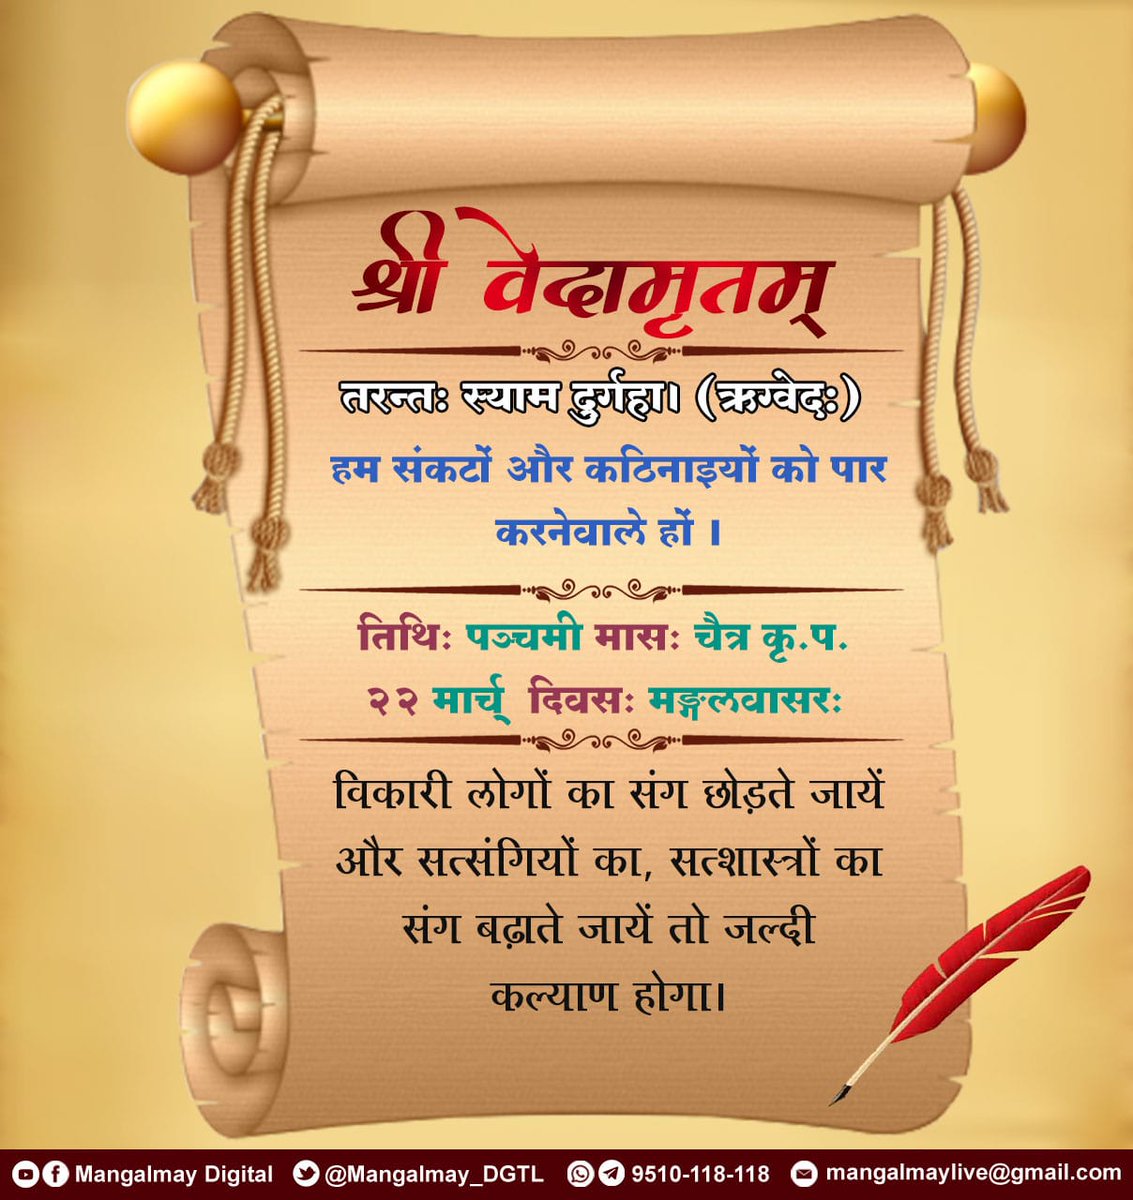 श्री वेदामृतम्
तरन्तः स्याम दुर्गहा। (ऋग्वेदः)
हम संकटों और कठिनाइयों को पार
करनेवाले हों ।
तिथिः पञ्चमी मासः चैत्र कृ.प.
२२ मार्च् दिवसः मङ्गलवासरः
विकारी लोगों का संग छोड़ते जायें
और सत्संगियों का, सत्शास्त्रों का
संग बढ़ाते जायें तो जल्दी
कल्याण होगा।
Mangalmay Digital @Mangalmay_DGTL 9510-118-118 mangalmaylive@gmail.com